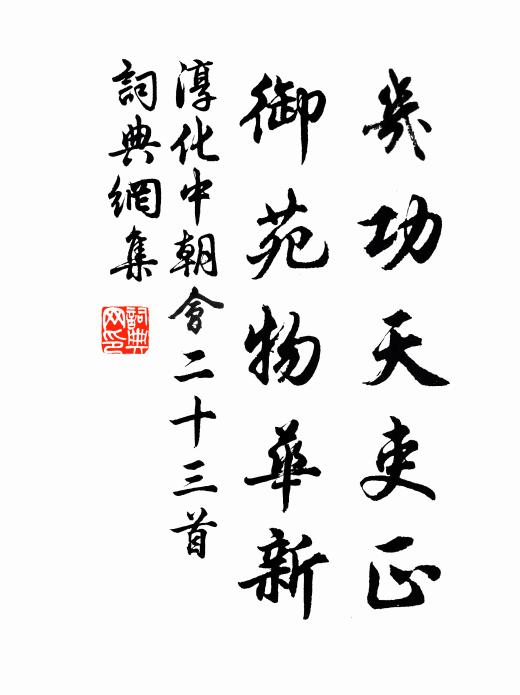 歲功天吏正
御苑物華新
淳化中朝會二十三首
詞典網集
詞典
网印